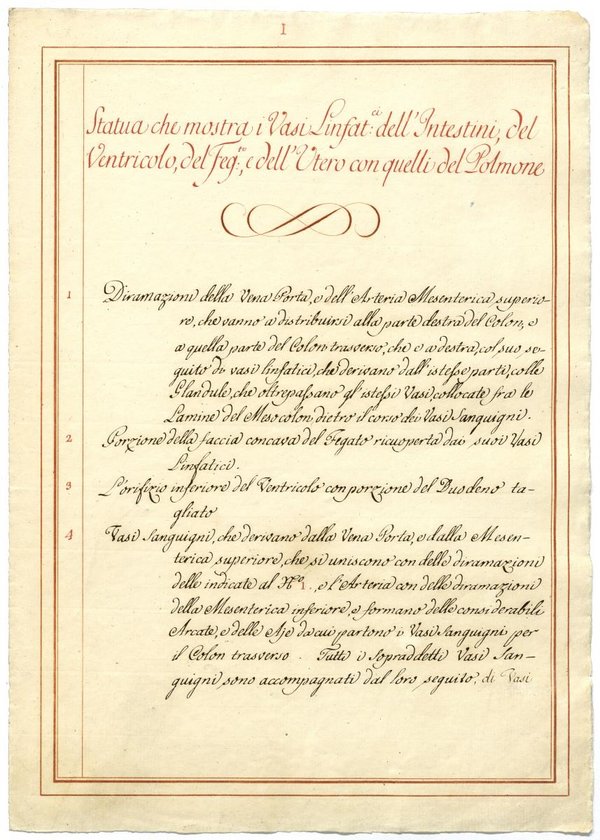 I
Statua che mostra i Vasi Linfat:ci dell'Intestini, del
Ventricolo, del Feg:to, e dell'Utero con quelli del Polmone
1 Diramazioni della Vena Porta, e dell'Arteria Mesenterica superio-
re, che vanno a distribuirsi alla parte destra del Colon, e
a quella parte del Colon trasverso, che e a destra, col suo se-
guito di vasi linfatici, che derivano dall'istesse parti, colle
Glandule, che oltrepassano gl'istessi Vasi, collocate fra le
Lamine del Mesocolon, dietro il corso dei Vasi Sanguigni.
2 Porzione della faccia concava del Fegato ricuoperta dai suoi Vasi
Linfatici.
3 L'orifizio inferiore del Ventricolo con porzione del Duodeno ta-
gliato
4 Vasi Sanguigni, che derivano dalla Vena Porta, e dalla Mesen-
terica superiore, che si uniscono con delle diramazioni
delle indicate al No. 1., e l'Arteria con delle diramazioni
della Mesenterica inferiore, e formano delle considerabili
Arcate, e delle Aje da cui partono i Vasi Sanguigni per
il Colon trasverso. Tutti i Sopraddetti Vasi San-
guigni sono accompagnati dal loro seguito, di Vasi